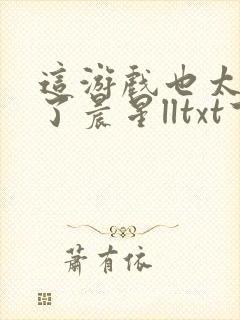 這游戲也太
了晨星lltxt
蕭有依